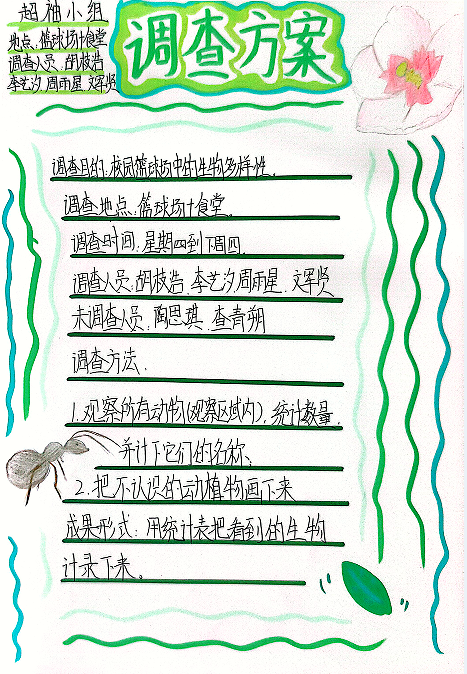 超袖小组
地点:篮球场十食堂
调查人员:胡枝浩
李艺汐 周雨星 文军贤
调查方案
调查目的:校园篮球场中的生物多样性。
调查地点:篮球场十食堂。
调查时间:星期四到下周四.
调查人员:胡枝浩、李艺汐、周雨星、文军贤
未调查人员:陶思琪、查青朔
调查方法:
1.观察所有动物(观察区域内),统计数量,
并计下它们的名称;
2.把不认识的动植物画下来
成果形式:用统计表把看到的生物
计录下来。